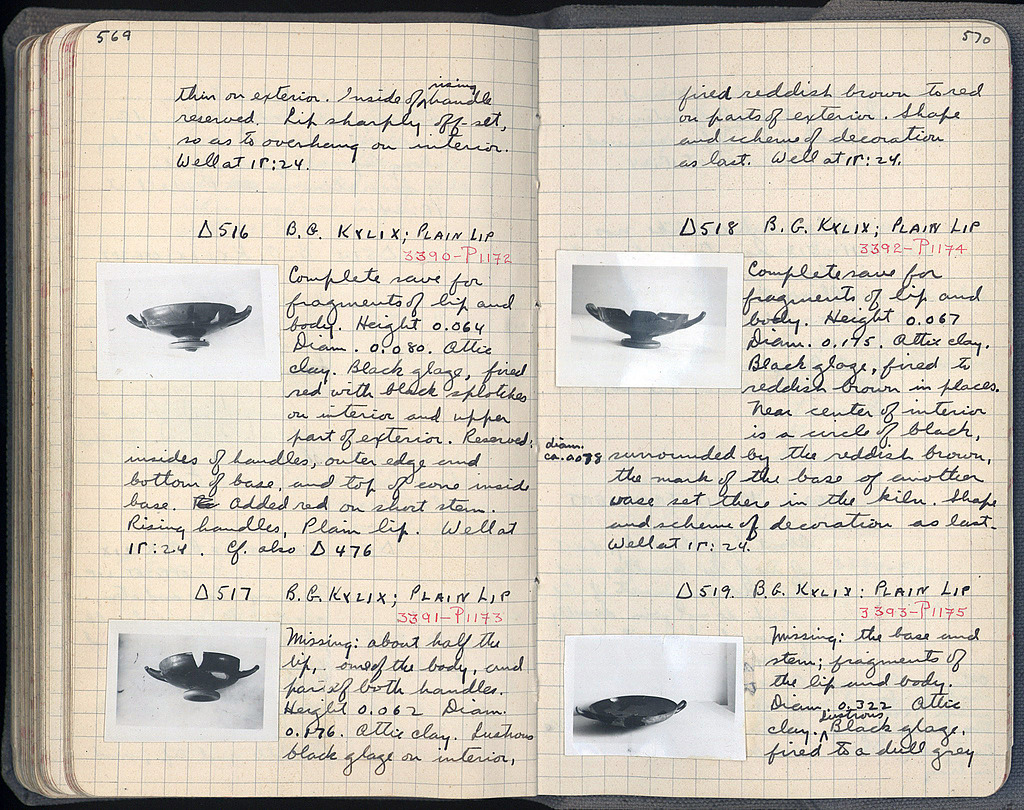 569
thin on exterior. Inside of rising handle
reserved. Lip sharply off-set,
so as to overhang on interior.
Well at ΙΓ:24.
Δ516 B.G. KYLIX; PLAIN LIP
3390-P1172
Complete save for
fragments of lip and
body. Height 0.064
Diam. 0.080. Attic
clay. Black glaze, fired
red with black splotches
on interior and upper
part of exterior. Reserved:
insides of handles, outer edge and
bottom of base, and top of cone inside
base. Added red on short stem.
Rising handles, Plain lip. Well at
ΙΓ:24. Cf. also Δ476
Δ517 B.G. KYLIX; PLAIN LIP
3391-P1173
Missing: about half the
lip, one of the body, and
part of both handles.
Height 0.062 Diam.
0.176. Attic clay. Lustrous
black glaze on interior,
570
fired reddish brown to red
on parts of exterior. Shape
and scheme of decoration
as last. Well at ΙΓ:24.
Δ518 B.G. KYLIX; PLAIN LIP
3392-P1174
Complete save for
fragments of lip and
body. Height 0.067
Diam. 0.175. Attic clay.
Black glaze, fired to
reddish brown in places.
Near center of interior
is a circle of black,
diam.
ca. 0.078 surrounded by the reddish brown,
the mark of the base of another
vase set there in the kiln. Shape
and scheme of decoration as last.
Well at ΙΓ:24.
Δ519. B.G. KYLIX: PLAIN LIP
3393-P1175
Missing: the base and
stem; fragments of
the lip and body.
Diam. 0.322 Attic
clay. Lustrous Black glaze,
fired to a dull grey